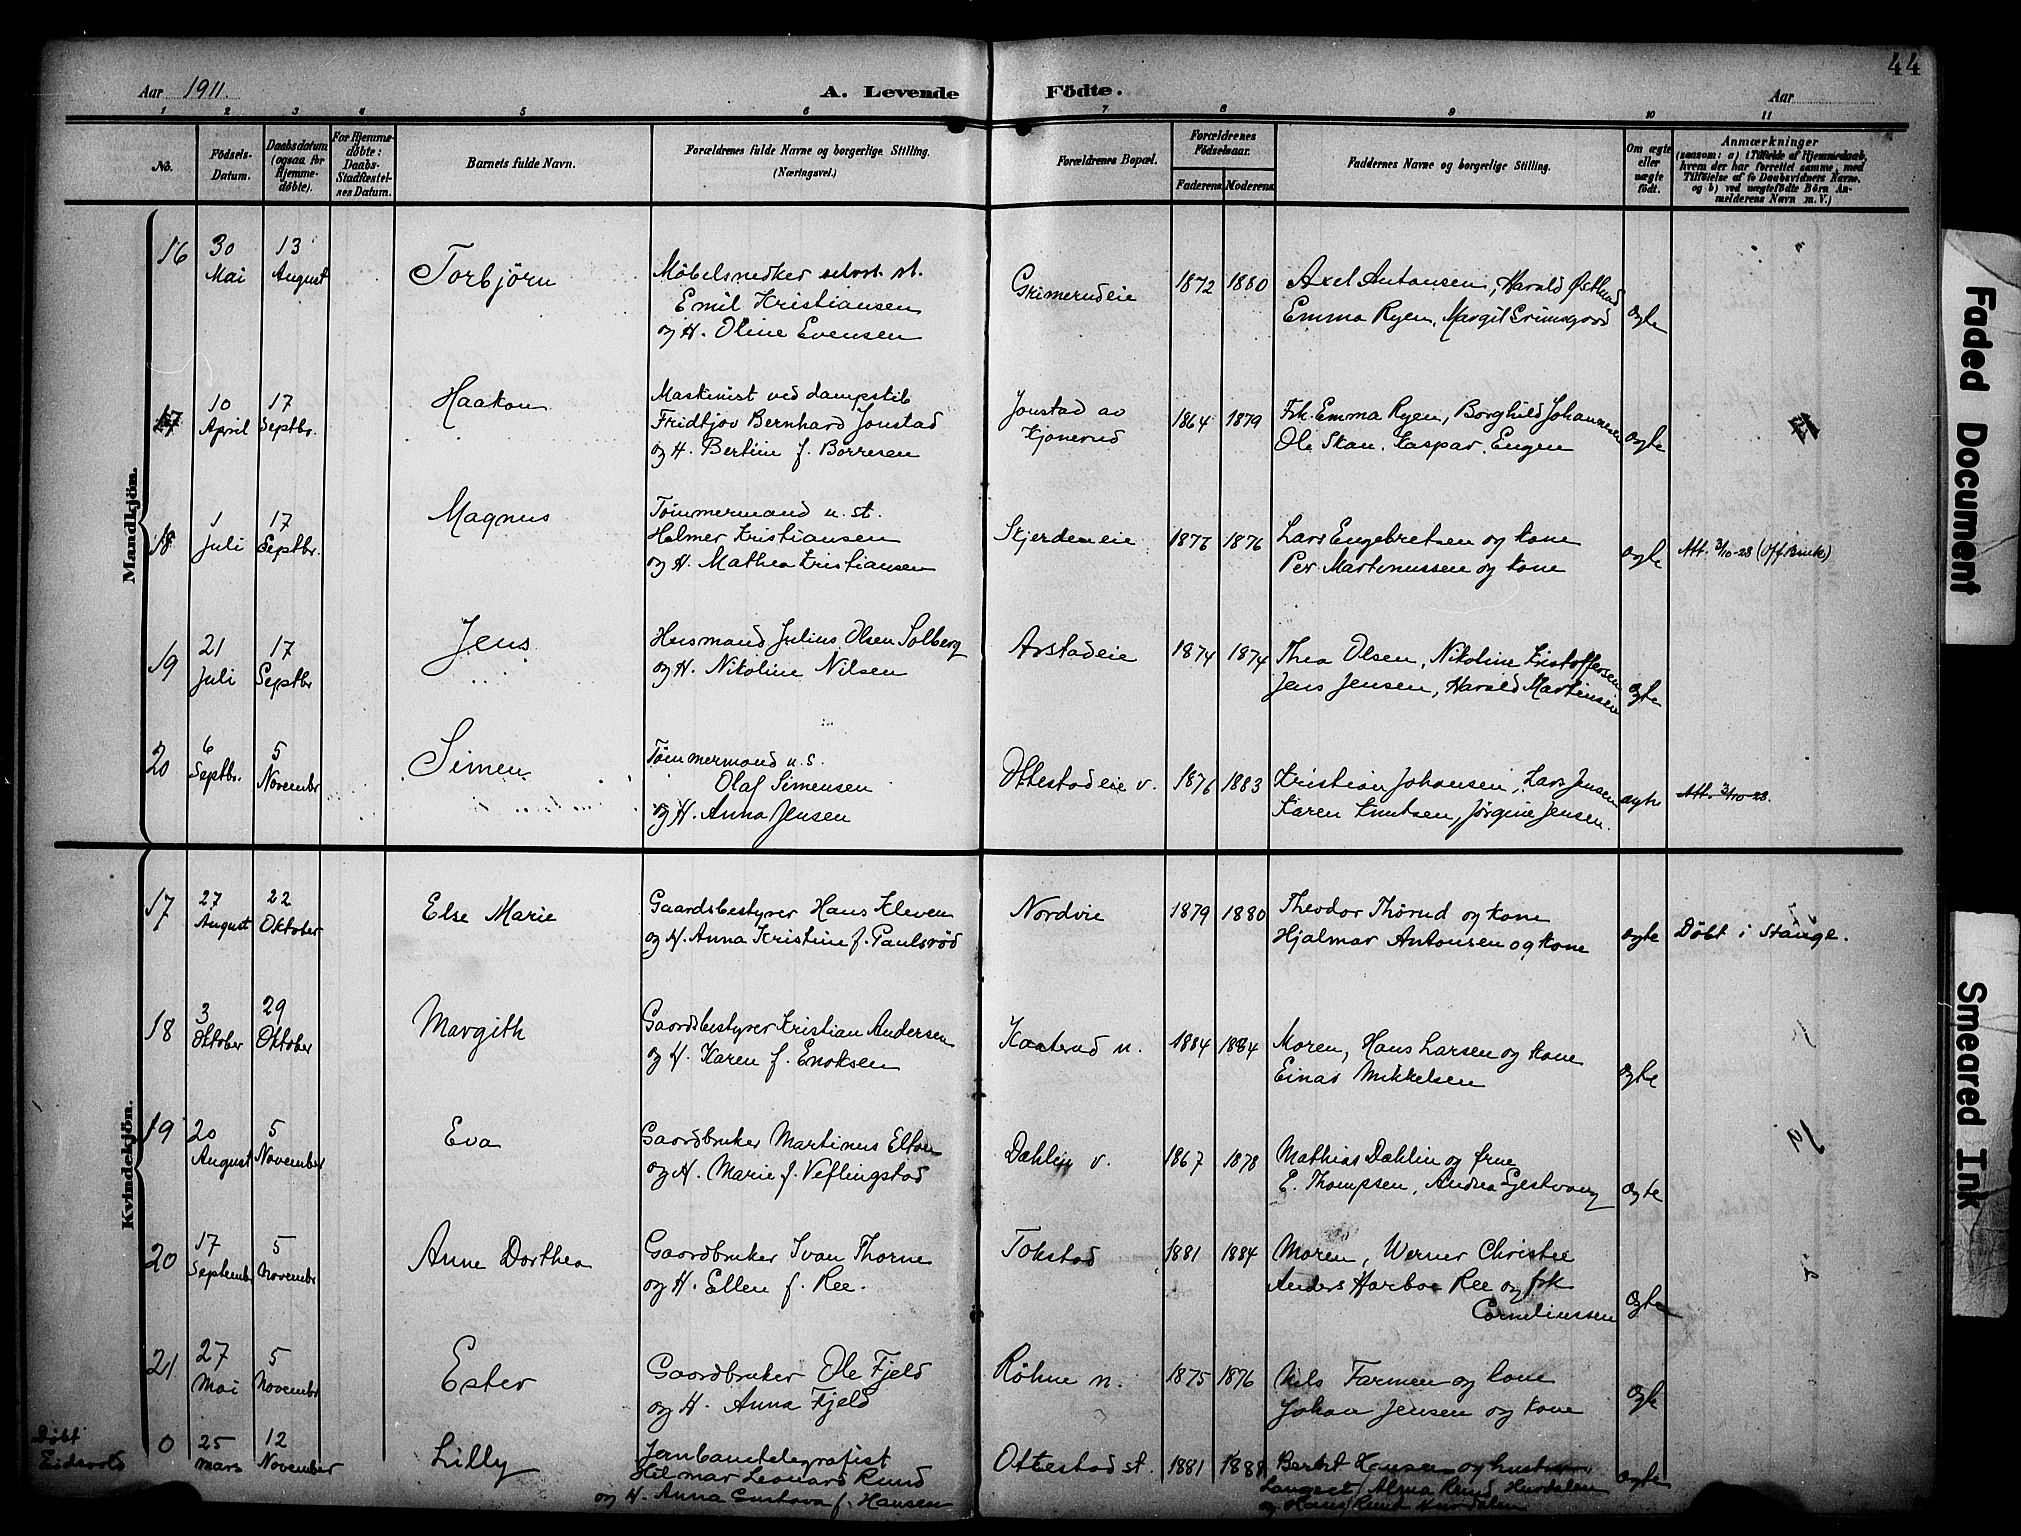 44
Aar 1911.
A. Levende Födte.
Aar
1 2 3 4 5 6 7 8 9 10 11
No.
Födsels-Datum.
Daabsdatum (ogsaa for Hjemme-döbte).
For Hjemme-döbte: Daabs-Stadfæstel-ses Datum.
Barnets fulde Navn.
Forældrenes fulde Navne og borgerlige Stilling.
(Næringsvei.)
Forældrenes Bopæl.
Forældrenes Födselsaar.
Faderens Moderens
Faddernes Navne og borgerlige Stilling.
Om ægte eller uægte födt.
Anmærkninger
(saasom: a) i Tilfælde af Hjemmedaab,
hvem der har forrettet samme, med
Tilföielse af to Daabsvidners Navne.
og b) ved uægtefödte Börn An-
melderens Navn m. V.)
Mandkjön.
16
30 Mai
13 August
Torbjörn
Møbelsnedker selvst. st.
Emil Kristiansen
og H. Oline Evensen
Grimerudeie
1872 1880
Axel Antonsen, Harald Østlund
Emma Ryen, Margit Grimsgord
ægte
17
10 April
17 Septbr.
Haakon
Maskinist ved dampskib
Fridtjov Bernhard Jonstad
og H. Bertine f. Börresen
Jonstad av
Kjonerud
1864 1879
Frk. Emma Ryen, Borghild Johannesen
Ole Skan. Kaspar Engen
ægte
18
1 Juli
17 Septbr.
Magnus
Tömmermand u. st.
Helmer Kristiansen
og H. Mathea Kristiansen
Skjerdeneie
1876 1876
Lars Engebretsen og kone
Per Martinussen og kone
ægte
Att. 3/10-28 (off Bruk)
19
21 Juli
17 Septbr
Jens
Husmand Julius Olsen Solberg
og H. Nikoline Nilsen
Arstadeie
1874 1874
Thea Olsen, Nikoline Kristoffersen
Jens Jensen, Harald Martinsen
ægte
20
6 Septbr.
5 Novembr
Simen
Tömmermand u. s.
Olaf Simensen
og H. Anna Jensen
Ottestadeie v.
1876 1883
Kristian Johansen, Lars Jensen
Karen Knutsen, Jörgine Jensen.
ægte
Att. 3/10-28.
Kvindekjön.
17
27 August
22 Oktober
Else Marie
Gaardsbestyrer Hans Kleven
og H. Anna Kristine f. Paulsröd
Nordvie
1879 1880
Theodor Thörud og kone
Hjalmar Antonsen og kone
ægte
Döbt i Stange.
18
3 Oktober
29 Oktober
Margith
Gaardsbestyrer Kristian Andersen
og H. Karen f. Enoksen
Kaaterud n.
1884 1884
Moren, Hans Larsen og kone
Einar Mikkelsen
ægte
19
20 August
5 November
Eva
Gaardbruker Martinus Elton
og H. Marie f. Veflingstad
Dahlin v.
1867 1878
Mathias Dahlin og frue
E. Thompsen, Andrea Gjestvang
ægte
20
17 Septembr
5 Novembr
Anne Dorthea
Gaardbruker Ivan Thorne
og H. Ellen f. Ree.
Tokstad
1881 1884
Moren, Werner Christie
Anders Harboe Ree og frk
Corneliussen
ægte
21
27 Mai
5 Novembr
Ester
Gaardbruker Ole Fjeld
og H. Anna Fjeld
Röhne n.
1875 1876
Nils Farmen og kone
Johan Jensen og kone
ægte
Döbt
Eidsvold
0
25 Mars
12 November
Lilly
Jernbanetelegrafist
Hilmar Leonard Rund
og H. Anna Gustava f. Hansen
Ottestad st.
1881 1888
Berht Hansen og hustru
Langset, Alma Rund Hurdalen
og Hans Rund Hurdalen
ægte
Faded Document
Smeared Ink